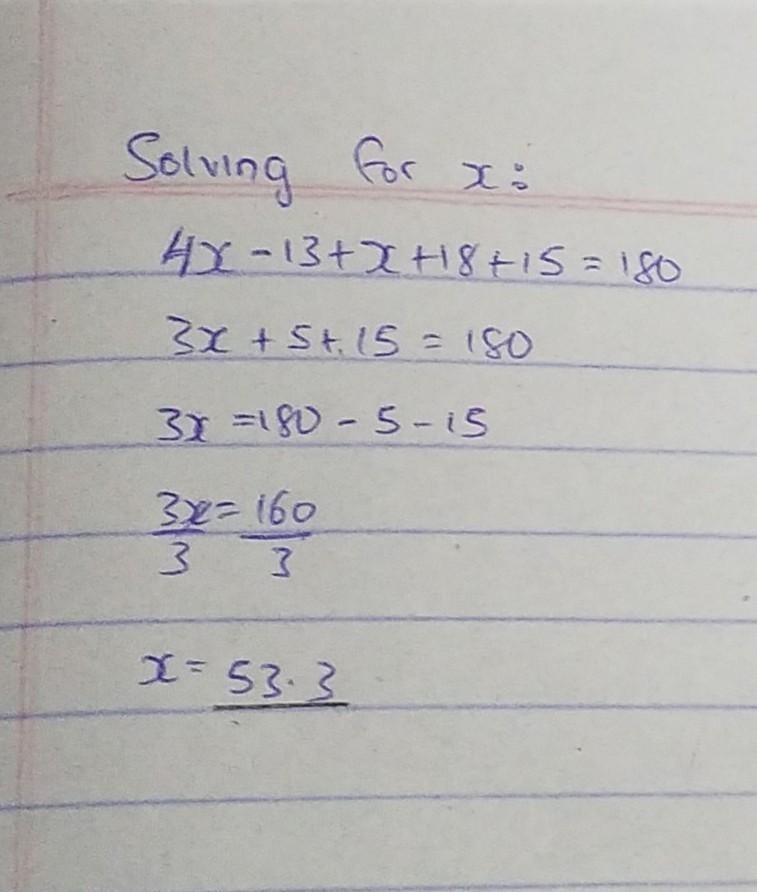 Solving for x:
4x - 13 + x + 18 + 15 = 180
3x + 5 + 15 = 180
3x = 180 - 5 - 15
3x = 160
3 3
x = 53.3